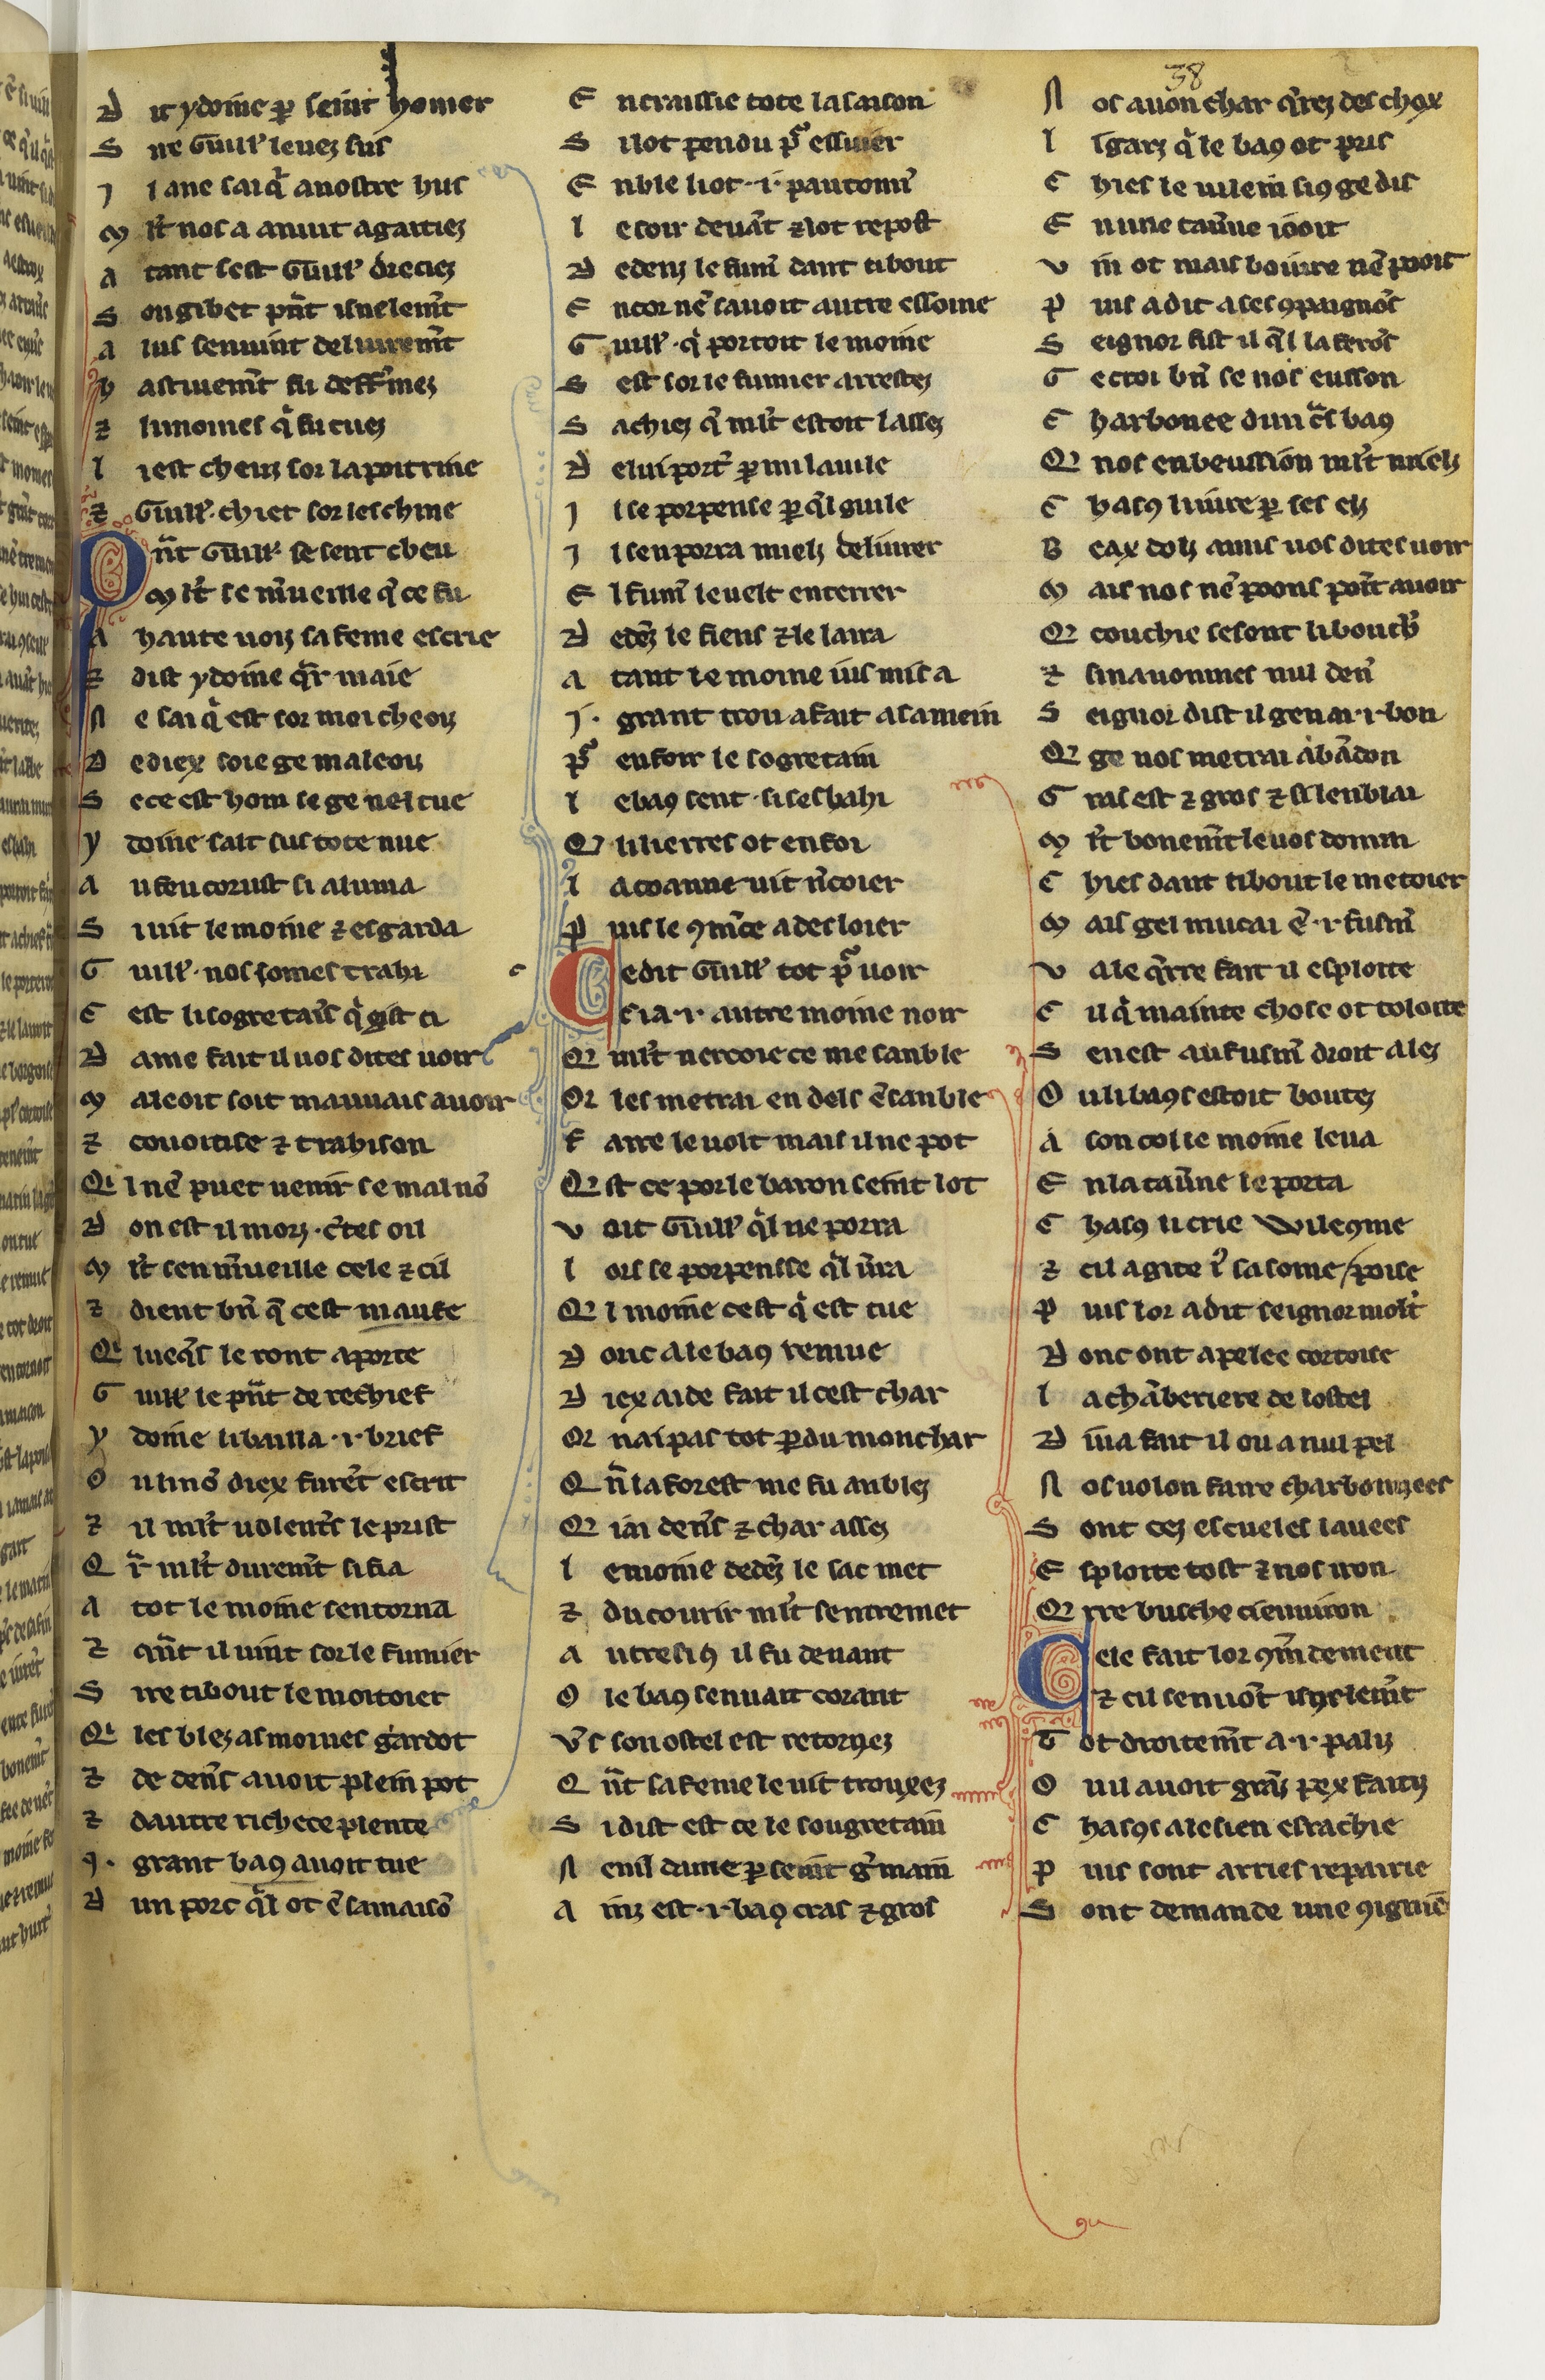 38
D it ydoine ꝑ seint homer
S ire Guill' leuez sus
J l a ne sai q̍ a nostre hus
M lt̍ nos a anuit agaitiez
A tant sest Guill' dreciez
S on gibet pn̄t isnelem̄t
A lus sen uint deliurem̄t
h astiuem̄t fu deffremez
⁊ li moines q̍ fu tuez
l i est cheuz sor la poitrine
⁊ Guill' chiet sor leschine
Q n̄t Guill' se sent cheu
M lt̍ se m̄ueille q̄ ce fu
A haute uoiz sa feme escrie
⁊ dist ydoine q̄r maie
N e sai q̍ est sor moi cheoiz
D e diex soie ge maleoiz
S e ce est hom se ge nel tue
y doine saut sus tote nue
A u feu corust si aluma
S i uit le moine ⁊ esgarda
G uill' nos somes trahi
C est li sogretais q̍ gist ci
D ame fait il uos dites uoir
M aleoit soit mauuais auoir
⁊ couoitise ⁊ trahison
Q il nē puet uenir se mal nō
D on est il morz c̄tes oil
M lt̍ sen m̄ueille cele ⁊ cil
⁊ dient bn̄ q̄ cest maufe
Q i iueq̄s le ront aporte
G uill' le pn̄t de rechief
y doine li bailla .i. brief
O u li nō diex furēt escrit
⁊ il mlt̍ uolent̄s le prist
Q r̄ mlt̍ durem̄t si fia
A tot le moine sen torna
⁊ qn̄t il uint sor le fumier
S ire tibout le moitoier
Q i les blez as moines gardot
⁊ de den̄s auoit plein pot
⁊ dautre richece plente
.I. grant baꝯ auoit tue
D un porc q̍l ot ē sa maisō
E ncraissie tote la saison
S i lot pendu pͣ essuier
E nble li ot .i. pautonn̍
l e soir deuāt ⁊ lot repost
D edenz le fum̍ dant tibout
E ncor nē sauoit autre essoine
G uill' q̍ portoit le moine
S est sor le fumier arrestez
S achiez q̍ mlt̍ estoit lassez
D e lui port̍ ꝑmi la uile
J l se porpense ꝑ q̍l guile
J l sen porra mielz deliurer
E l fum̍ le uelt enterrer
D edēz le fiens ⁊ le laira
A tant le moine ius mis a
.J. grant trou a fait a sa mein
pͣ enfoir le sogretain
l e baꝯ sent si sesbahi
Q li lierres ot enfoi
l a coanne uit n̄coier
P uis le ꝯm̄ce a desloier
C e dit Guill' tot pͣ uoir
C i a .i. autre moine noir
Q mlt̍ nercoie ce me sanble
Q r les metrai en dels ēsanble
F aire le uolt mais il ne pot
Q st ce por le baron seint lot
V oit Guill' q̍l ne porra
l ors se porpensse q̍l u̍ra
Q l moine cest q̍ est tue
D onc a le baꝯ remue
D iex aide fait il cest char
Or nai pas tot ꝑdu mon char
Q n̄ la forest me fu anblez
Q r ai den̄s ⁊ char assez
l e moine dedēz le sac met
⁊ du courir mlt̍ sentremet
A utresiꝯ il fu deuant
O le baꝯ sen uait corant
V̄s son ostel est retornez
Q n̄t sa feme le uit trouxez
S i dist est ce le sougretain
N enil dame ꝑ seint g̍main
A inz est .i. baꝯ cras ⁊ gros
N os auon char q̄rez des chox
l i garz q̍ le baꝯ ot pris
C hies le uilein siꝯ ge dis
E n une tau̍ne iooit
V in ot mais boiure nē pooit
P uis a dit a ses ꝯpaignōs
S eignor fist il q̄l la ferōs
G e croi bn̄ se nos eusson
C harbonee dun c̄s baꝯ
Q nos en beussion mlt̍ mielz
C hasꝯ li iure ꝑ ses elz
B eax dolz amis uos dites uoir
M ais nos nē poons point auoir
Q r couchie se sont li bouch̍
⁊ si nauommes nul den̍
S eignor dist il gen ai .i. bon
Q ge nos metrai abādon
G ras est ⁊ gros ⁊ si lenblai
M lt̍ bonem̄t le uos donrai
C hies dant tibout le metoier
M ais gel mucai ē .i. fusm̍
V a le q̄rre fait il esploite
C il q̍ mainte chose ot toloite
S en est au fusm̍ droit alez
O u li baꝯs estoit boutez
A son col le moine leua
E n la tau̍ne le porta
C hasꝯ li crie Wileꝯme
⁊ cil a gite i̍ sa some poise
P uis lor a dit seignor molt
D onc ont apelee cortoise
l a chāberiere de lostel
D iua fait il ou a nul pel
N os uolon faire charbonnees
S ont cez escueles lauees
E sploite tost ⁊ nos iron
Q rre busche ci enuiron
C ele fait lor ꝯm̄dement
⁊ cil sen uōt isnelem̄t
T ot droitem̄t a .i. paliz
O u il auoit grāz pex faitiz
C hasꝯs a le sien esrachie
P uis sont arries repairie
S ont demande une ꝯigniē